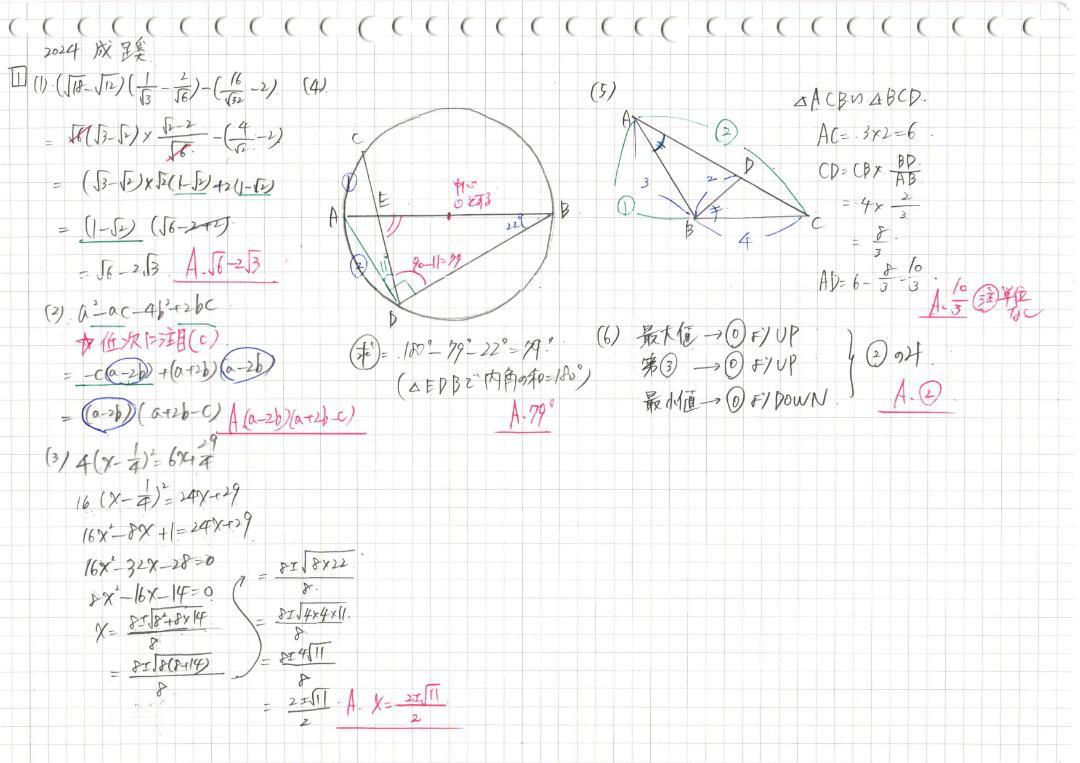 2024 成蹊
1 (1) (√18-√12)(1/√3 - 2/√6)-(16/√32 -2)
= √6(√3-√2)× (√2-2)/√6 -(4/√2 -2)
= (√3-√2)×√2(1-√2)+2(1-√2)
= (1-√2) (√6-2+2)
= √6-2√3. A.√6-2√3
(2) a²-ac-4b²+2bc
☆低次に注目(c)
= -c(a-2b)+(a+2b)(a-2b)
= (a-2b)(a+2b-c) A(a-2b)(a+2b-c)
(3) 4(x-1/4)²=6x+29/4
16(x-1/4)²=24x+29
16x²-8x+1=24x+29
16x²-32x-28=0
8x²-16x-14=0
x= (8±√(8²+8×14))/8
= (8±√(8(8+14)))/8
= (8±√(8×22))/8
= (8±√(4×4×11))/8
= (8±4√11)/8
= (2±√11)/2 A. x= (2±√11)/2
(4)
C
①
E
A
B
22°
②
11°
90-11=79
D
求= 180°-79°-22°=79°
(△EDBで内角の和=180°)
A.79°
(5)
A
②
3
2
D
①
B
4
C
△ACB∽△BCD.
AC=3×2=6
CD=CB× BD/AB
=4× 2/3
= 8/3
AD=6- 8/3 = 10/3
A. 10/3 注 単位なし
(6) 最大値→⓪よりUP
第③ →⓪よりUP
最小値→⓪よりDOWN
②のみ
A.②